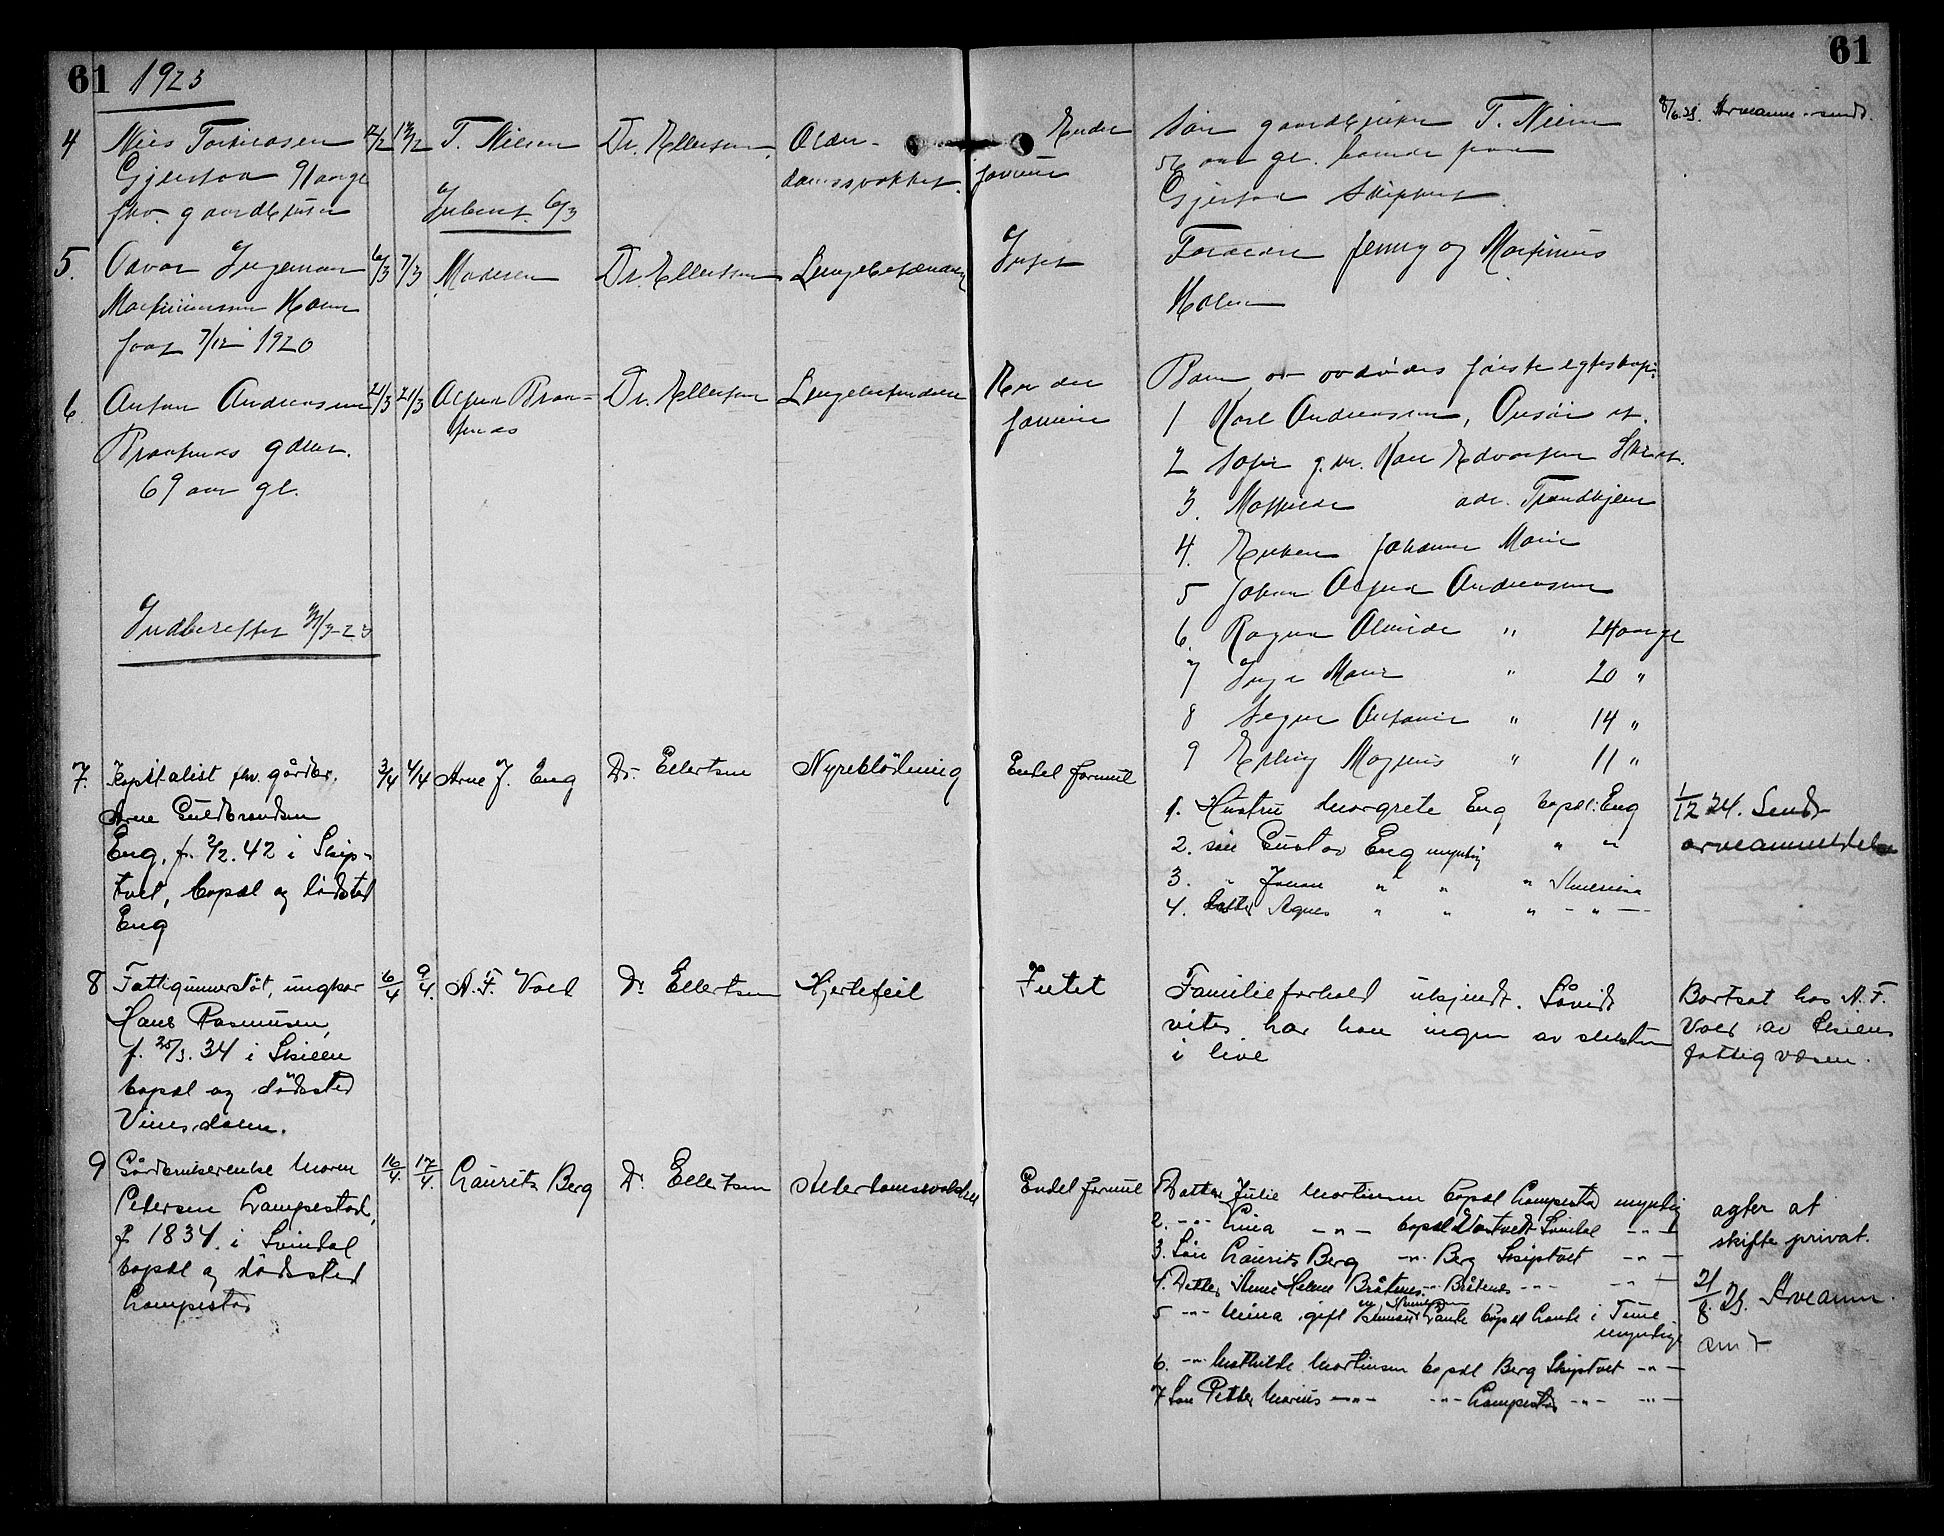 61 1923
61
4 Gjerstad 91 aar gl.
fhv. gaardbruker
12/2 13/2 T. Nilsen
Indberet. 6/3
Dr. Ellertsen
Alder-
domssvækkelse
Endel
formue
Søn gaardbruker T. Nilsen
56 aar gl. boende paa
Gjerstad Skiptvet
8/6.23. Arveanm. sendt.
5. Odvar Ingeman
Martiniussen Holen
født 7/12 1920
6/3 7/3 Moderen
Dr. Ellertsen
Lungebetændelse
Intet
Foræld. Jenny og Martinius
Holen
6. Anton Andreassen
Braatenes gdbr.
69 aar gl.
21/3 21/3 Alfred Braa-
tenes
Dr. Ellertsen
Lungebetændelse
En del
formue
Barn av avdødes første egteskap:
1 Karl Andreassen,
2 Sofie g. m. Karl Edvardsen
3. Mathilde adr. Trondhjem
4. Enken Johanne Marie
5 Johan Alfred Andreassen
6. Ragna Alvilde " 24 aar gl
7 Inga Marie " 20 "
8 Signe Antonie " 14 "
9 Erling Magnus " 11 "
Indberettet 31/3-23
7. Kapitalist fhv. gårdbr.
Arne Guldbrandsen
Eng, f. 2/2.42 i Skip-
tvet, bopæl og dødsted
Eng
3/4 4/4 Arne J. Eng
Dr. Ellertsen
Nyreblödning
Endel formue
1. Hustru Margrete Eng bopæl: Eng
2. sön Gustav Eng myndig " "
3. " Johan " " " Amerika
4. datter Agnes " " " - " -
1/12 24. Sendt
arveanmeldelse
8 Fattigunderstöt, ungkar
Hans Rasmusen,
f. 25/3.34 i Skieen
bopæl og dödsted
Vinesdalen.
6/4 9/4. A. F. Vold
Dr. Ellertsen
Hjertefeil
Intet
Familieforhold ukjendt. Såvidt
vites har han ingen av slekten
i live
Bortsat hos A. F.
Vold av Skiens
fattigvæsen.
9 Gårdbrukerenke Maren
Petersen Lampestad,
f. 1834. i Svindal
bopæl og dödsted
Lampestad
16/4. 17/4. Laurits Berg
Dr. Ellertsen
Alderdomssvakhet
Endel formue
Datter Julie Martinsen bopæl Lampestad myndig
2. -"- Lina -"- bopæl Svindal -"-
3. Sön Laurits Berg -"- Berg Skiptvet -"-
4. Datter Anne Helene Bråtenes -"- Bråtenes -"- -"-
5 -"- Mina gift bopæl i Tune
myndige
6. -"- Mathilde Martinsen bopæl Berg Skiptvet -"-
7 Sön Petter Marius -"- -"- Lampestad -"- -"-
agter at
skifte privat.
21/8. 23. Arveanm.
sendt